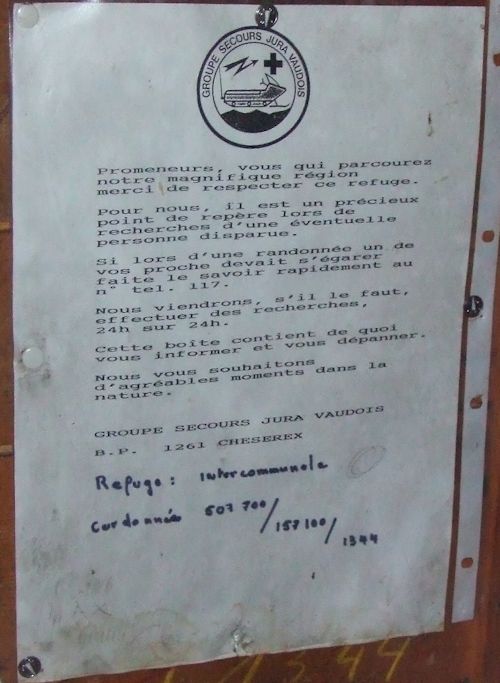 GROUPE SECOURS JURA VAUDOIS
Promeneurs, vous qui parcourez
notre magnifique région
merci de respecter ce refuge.
Pour nous, il est un précieux
point de repère lors de
recherches d'une éventuelle
personne disparue.
Si lors d'une randonnée un de
vos proche devait s'égarer
faite le savoir rapidement au
n° tel. 117.
Nous viendrons, s'il le faut,
effectuer des recherches,
24h sur 24h.
Cette boîte contient de quoi
vous informer et vous dépanner.
Nous vous souhaitons
d'agréables moments dans la
nature.
GROUPE SECOURS JURA VAUDOIS
B.P. 1261 CHESEREX
Refuge: intercommunale
Cordonnées 507 700/157100/1344
1344